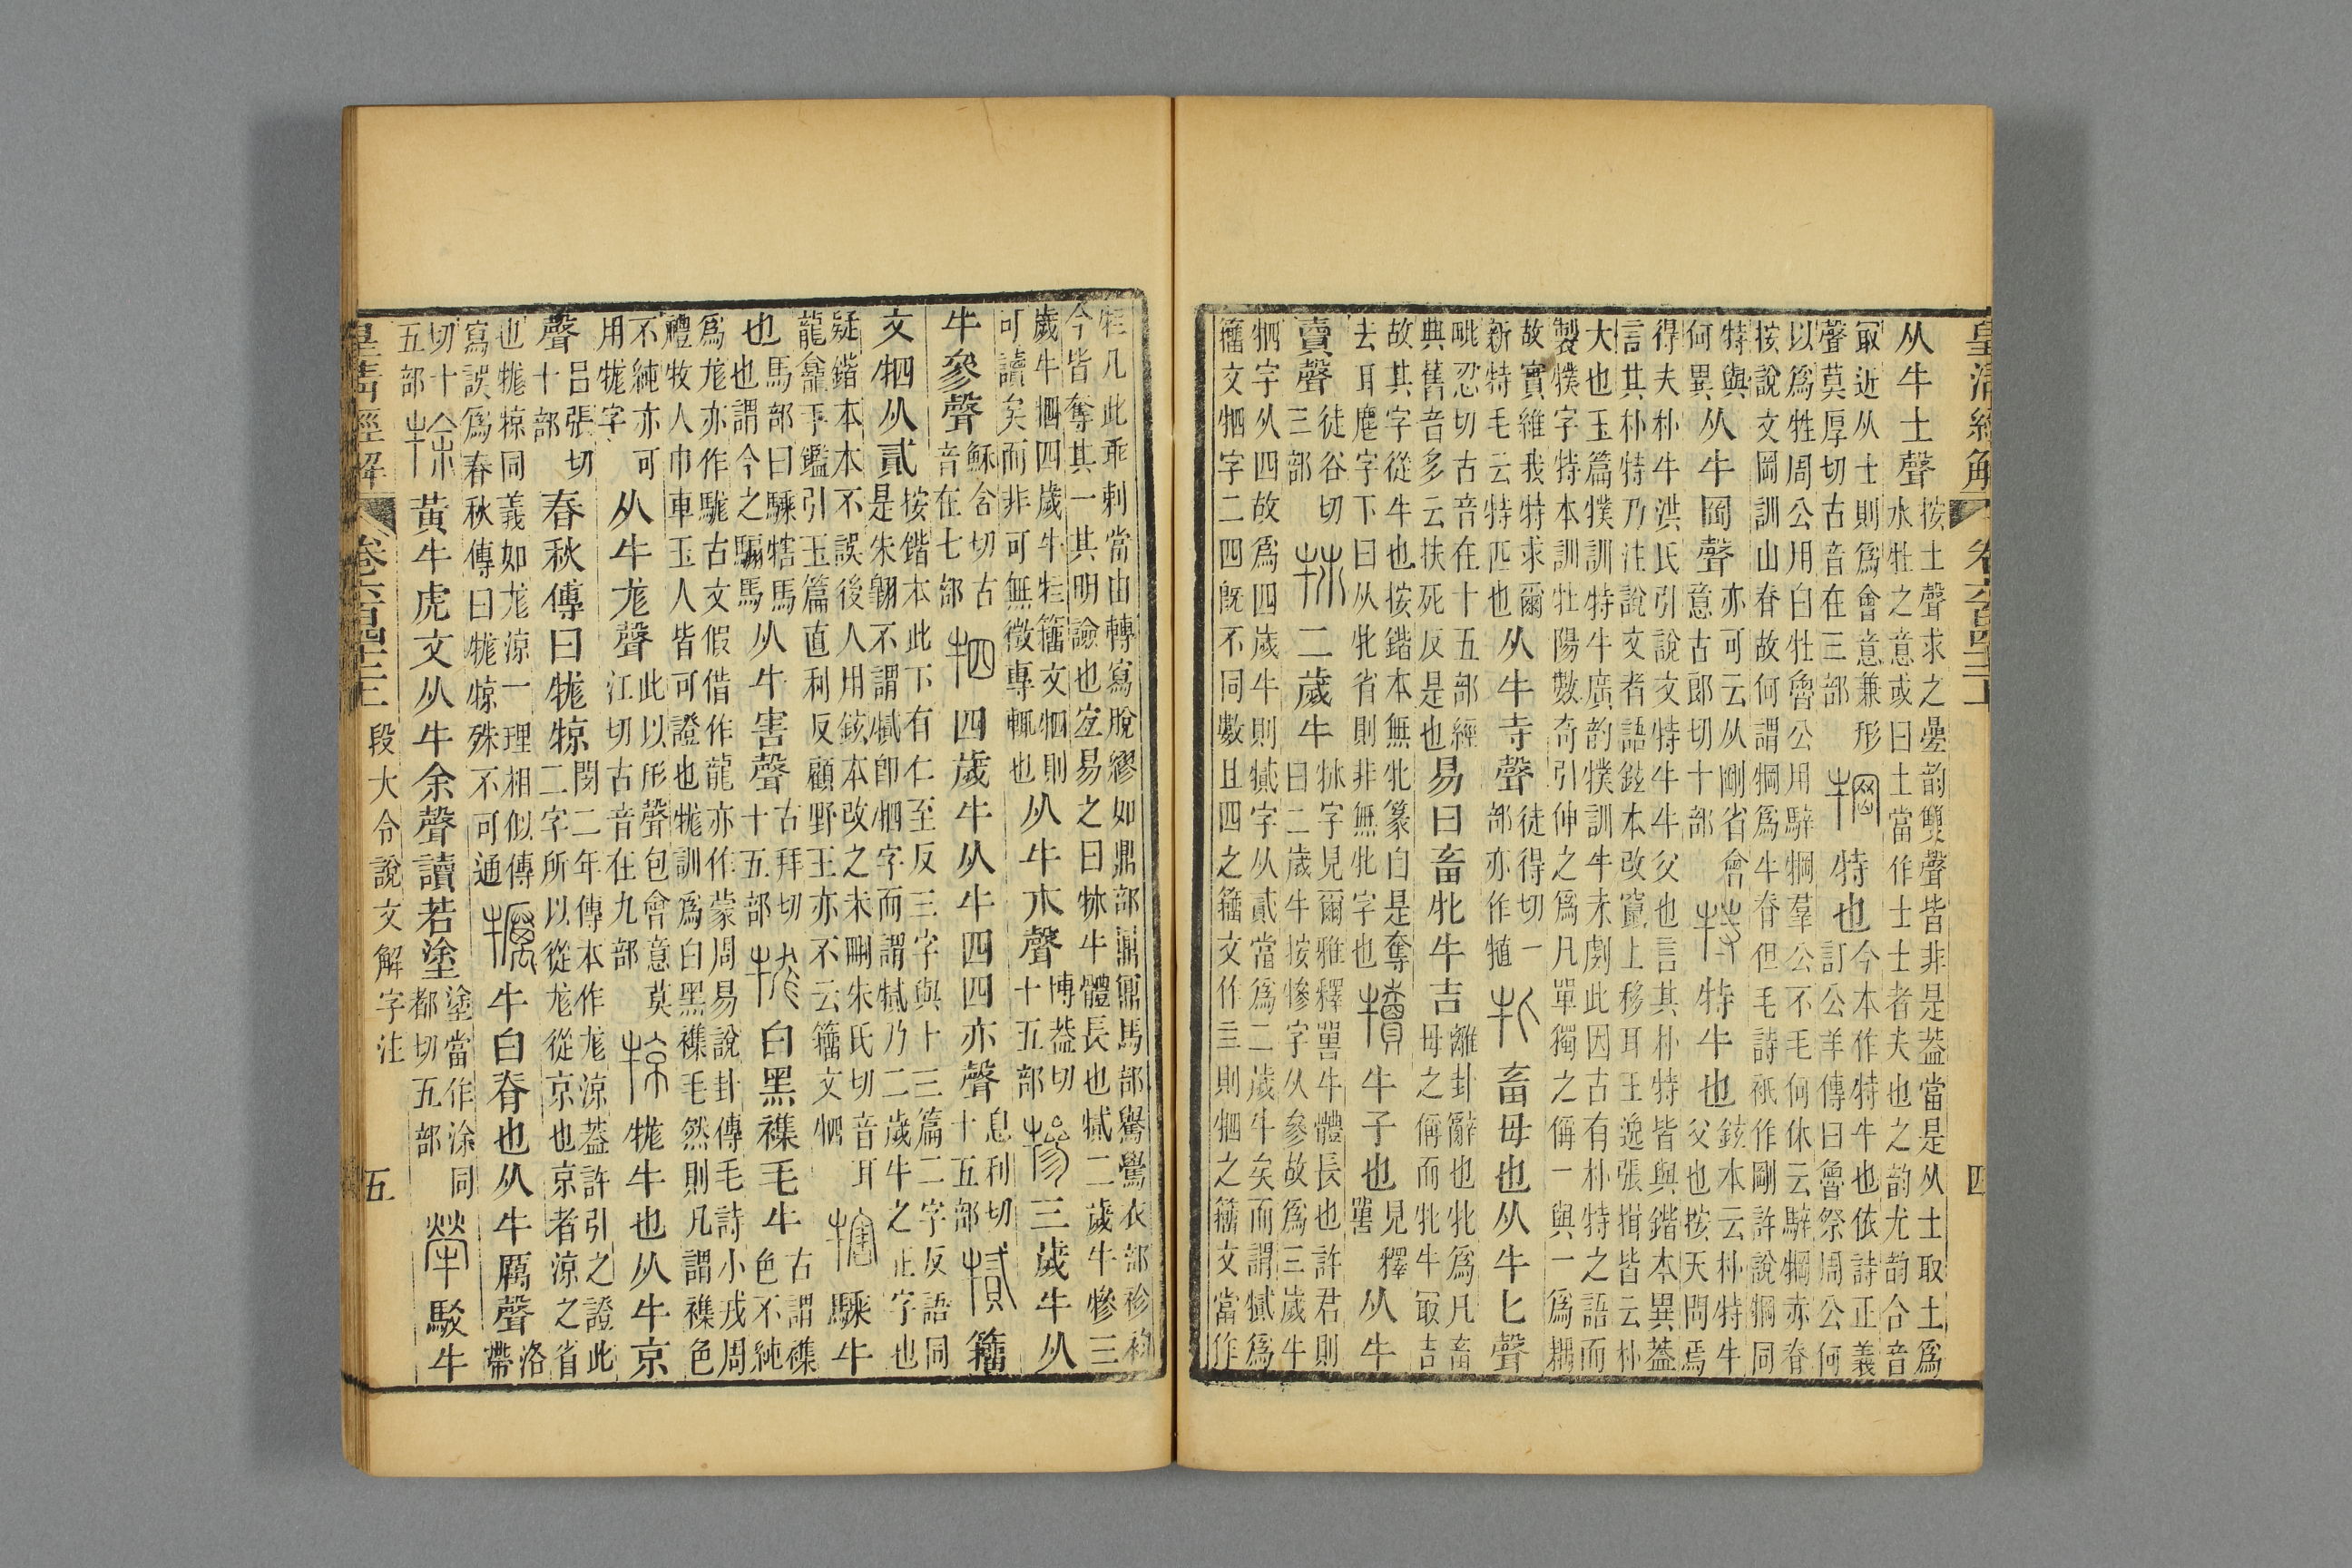 皇清經解 卷六百四十二 四
从牛土聲按土聲求之疊韵雙聲皆非是葢當是从土取土爲水牡之意或曰土當作士士者夫也之韵尤韵合音
冣近从士則爲會意兼形聲莫厚切古音在三部犅特也今本作特牛也依詩正義訂公羊傳曰魯祭周公何
以爲牲周公用白牡魯公用騂犅羣公不毛何休云騂犅赤脊按說文岡訓山脊故何謂犅爲牛脊但毛詩祇作剛許說犅同
特與何異从牛岡聲亦可云从剛省會意古郎切十部特特牛也鉉本云朴特牛父也按天問焉
得夫朴牛洪氏引說文特牛牛父也言其朴特皆與鍇本異葢言其朴特乃注說文者語鉉本改竄上移耳王逸張揖皆云朴
大也玉篇㹒訓特牛廣韵㹒訓牛未劇此因古有朴特之語而製㹒字特本訓牡陽數奇引伸之爲凡單獨之偁一與一爲耦
故實維我特求爾新特毛云特匹也从牛寺聲徒得切一部亦作犆牝畜母也从牛匕聲
毗忍切古音在十五部經典舊音多云扶死反是也易曰畜牝牛吉離卦辭也牝爲凡畜母之偁而牝牛冣吉
故其字從牛也按鍇本無牝篆白是奪去耳麀字下曰从牝省則非無牝字也犢牛子也見釋嘼从牛
𧶠聲徒谷切三部㹑二歲牛㹑字見爾雅釋嘼牛體長也許君則曰二歲牛按犙字从參故爲三歲牛
牭字从四故爲四歲牛則樲字从貳當爲二歲牛矣而謂樲爲籒文牭字二四旣不同數且四之籒文作亖則牭之籒文當作
⿰牛亖凡此乖剌當由轉寫脫繆如鼎部鼒鼏馬部驂鷽衣部袗袀今皆奪其一其明譣也㝎易之曰㹑牛體長也⿰牛貳二歲牛犙三
歲牛牭四歲牛⿰牛亖籒文牭則可讀矣而非可無徵專輒也从牛𣎵聲博葢切十五部犙三歲牛从
牛參聲穌含切古音在七部牭四歲牛从牛四四亦聲息利切十五部⿰牛貳籒
文牭从貳按鍇本此下有仁至反三字與十三篇二字反語同是朱翺不謂⿰牛貳卽牭字而謂⿰牛貳乃二歲牛之正字也
疑鍇本本不誤後人用鉉本改之未刪朱氏切音耳龍龕手鑑引玉篇直利反顧野王亦不云籒文牭犗騬牛
也馬部曰騬犗馬也謂今之騸馬从牛害聲古拜切十五部牻白黑襍毛牛古謂襍色不純
爲尨亦作駹古文假借作龍亦作蒙周易說卦傳毛詩小戎周禮牧人巾車玉人皆可證也牻訓爲白黑襍毛然則凡謂襍色
不純亦可用牻字从牛尨聲此以形聲包會意莫江切古音在九部㹁牻牛也从牛京
聲呂張切十部春秋傳曰牻㹁閔二年傳本作尨涼葢許引之證此二字所以從尨從京也京者涼之省
也牻㹁同義如尨涼一理相似傳寫誤爲春秋傳曰牻㹁殊不可通犡牛白脊也从牛厲聲洛帶
切十五部⿰牛余黃牛虎文从牛余聲讀若塗塗當作涂同都切五部犖駁牛
皇清經解 卷六百四十二 段大令說文解字注 五